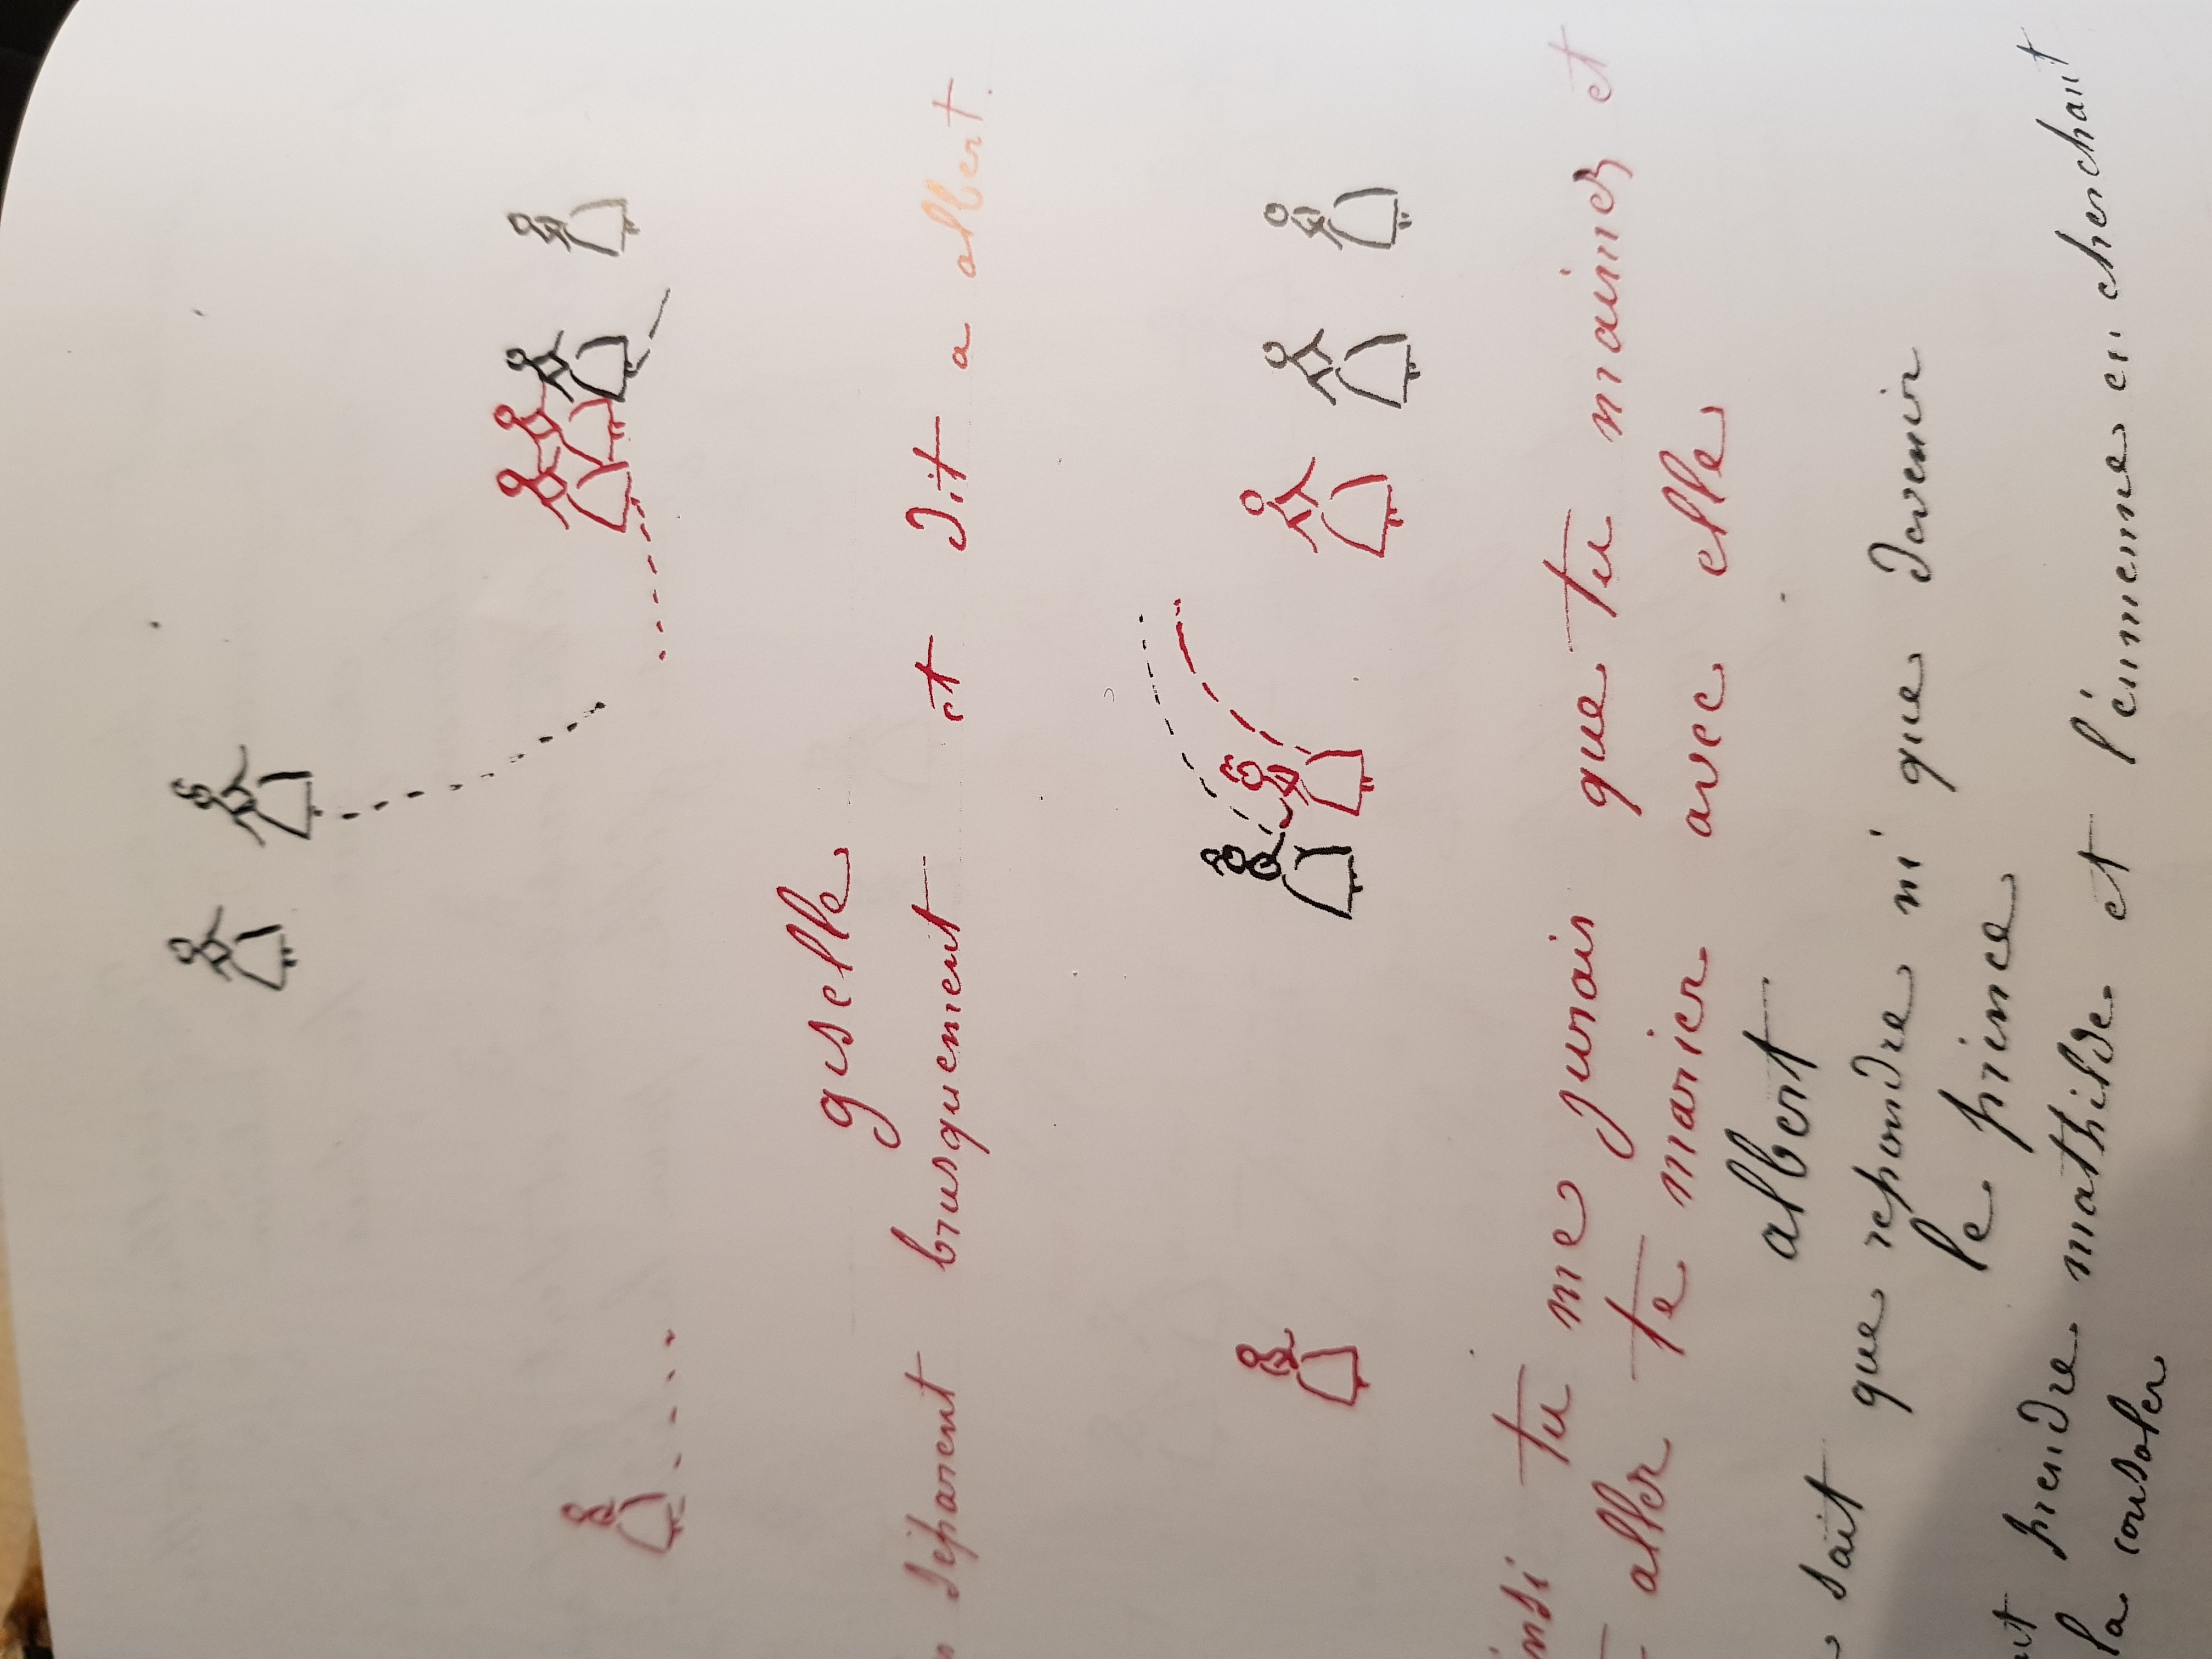 giselle
séparent brusquement et dit a albert.
insi tu me jurais que tu maimer et
aller te marier avec elle
albert
sait que repondre ni que devenir
le prince
prendre mathilde et l'emmene en cherchant
la consoler